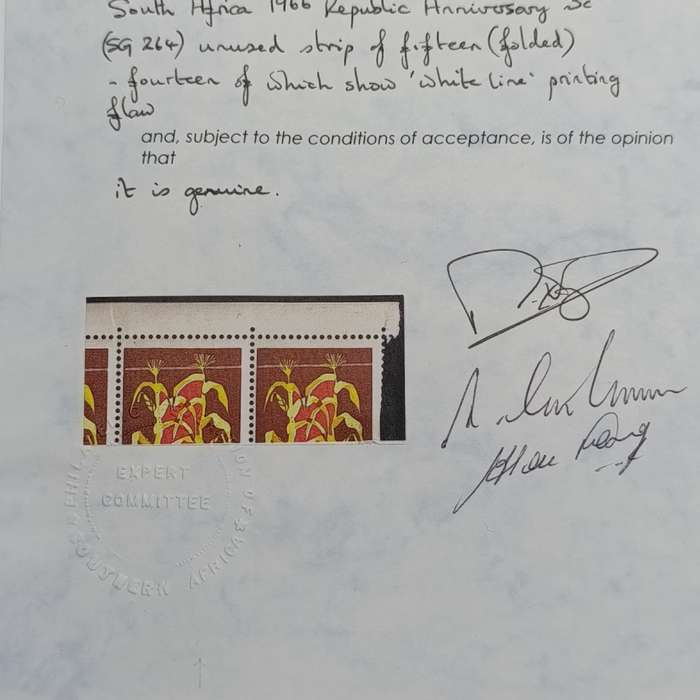 South Africa 1966 Republic Anniversary 3c
(SG 264) unused strip of fifteen (folded)
- fourteen of which show 'white line' printing
flaw
and, subject to the conditions of acceptance, is of the opinion
that
it is genuine.
EXPERT
COMMITTEE
SOUTHERN AFRICA